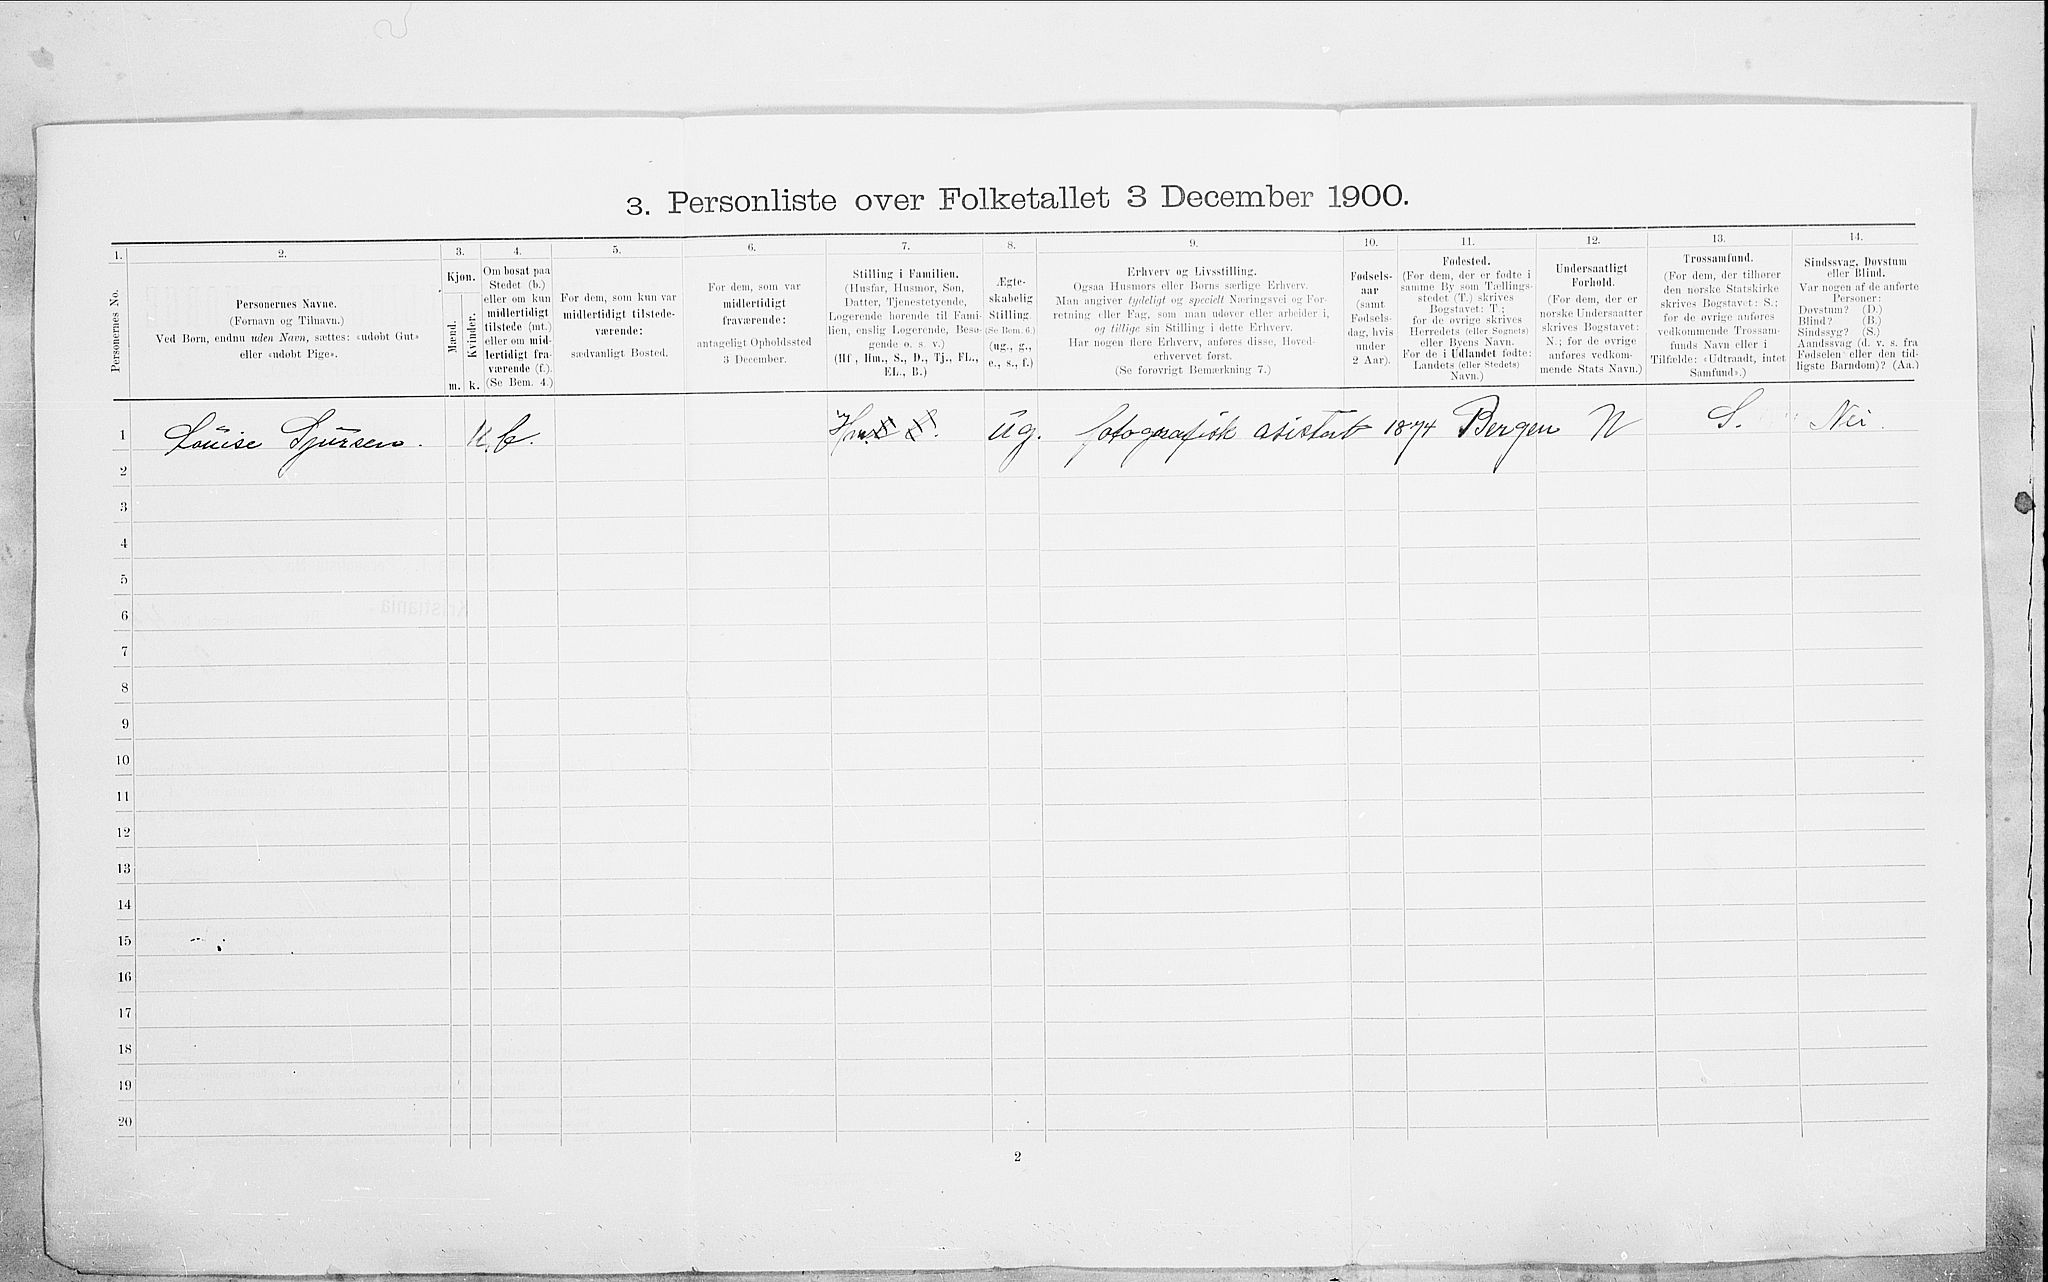 3. Personliste over Folketallet 3 December 1900.
1. 2. 3. 4. 5. 6. 7. 8. 9. 10. 11. 12. 13. 14.
Personernes No.
Personernes Navne.
(Fornavn og Tilnavn.)
Ved Børn, endnu uden Navn, sættes: «udøbt Gut»
eller «udøbt Pige».
Kjøn.
Mænd.
Kvinder.
m. k.
Om bosat paa
Stedet (b.)
eller om kun
midlertidigt
tilstede (mt.)
eller om mid-
lertidigt fra-
værende (f.).
(Se Bem. 4.)
For dem, som kun var
midlertidigt tilstede-
værende:
sædvanligt Bosted.
For dem, som var
midlertidigt
fraværende:
antageligt Opholdssted
3 December.
Stilling i Familien.
(Husfar, Husmor, Søn,
Datter, Tjenestetyende,
Logerende hørende til Fami-
lien, enslig Logerende, Besø-
gende o. s. v.)
(Hf, Hm., S., D., Tj., FL.,
EL., B.)
Ægte-
skabelig
Stilling.
(Se Bem. 6.)
(ug., g.,
e., s., f.)
Erhverv og Livsstilling.
Ogsaa Husmors eller Børns særlige Erhverv.
Man angiver tydeligt og specielt Næringsvei og For-
retning eller Fag, som man udøver eller arbeider i,
og tillige sin Stilling i dette Erhverv.
Har nogen flere Erhverv, anføres disse, Hoved-
erhvervet først.
(Se forøvrigt Bemærkning 7.)
Fødsels-
aar
(samt
Fødsels-
dag, hvis
under
2 Aar).
Fødested.
(For dem, der er fødte i
samme By som Tællings-
stedet (T.) skrives
Bogstavet: T;
for de øvrige skrives
Herredets (eller Sognets)
eller Byens Navn.
For de i Udlandet fødte:
Landets (eller Stedets)
Navn.)
Undersaatligt
Forhold.
(For dem, der er
norske Undersaatter
skrives Bogstavet:
N.; for de øvrige
anføres vedkom-
mende Stats Navn.)
Trossamfund.
(For dem, der tilhører
den norske Statskirke
skrives Bogstavet: S.;
for de øvrige anføres
vedkommende Trossam-
funds Navn eller i
Tilfælde: «Udtraadt, intet
Samfund».)
Sindssvag, Døvstum
eller Blind.
Var nogen af de anførte
Personer:
Døvstum? (D.)
Blind? (B.)
Sindssyg? (S.)
Aandssvag (d. v. s. fra
Fødselen eller den tid-
ligste Barndom)? (Aa.)
1 Louise Sjursen. K. b. Hm. ug. fotografisk asistent 1874 Bergen N S. Nei.
2
3
4
5
6
7
8
9
10
11
12
13
14
15
16
17
18
19
20
2